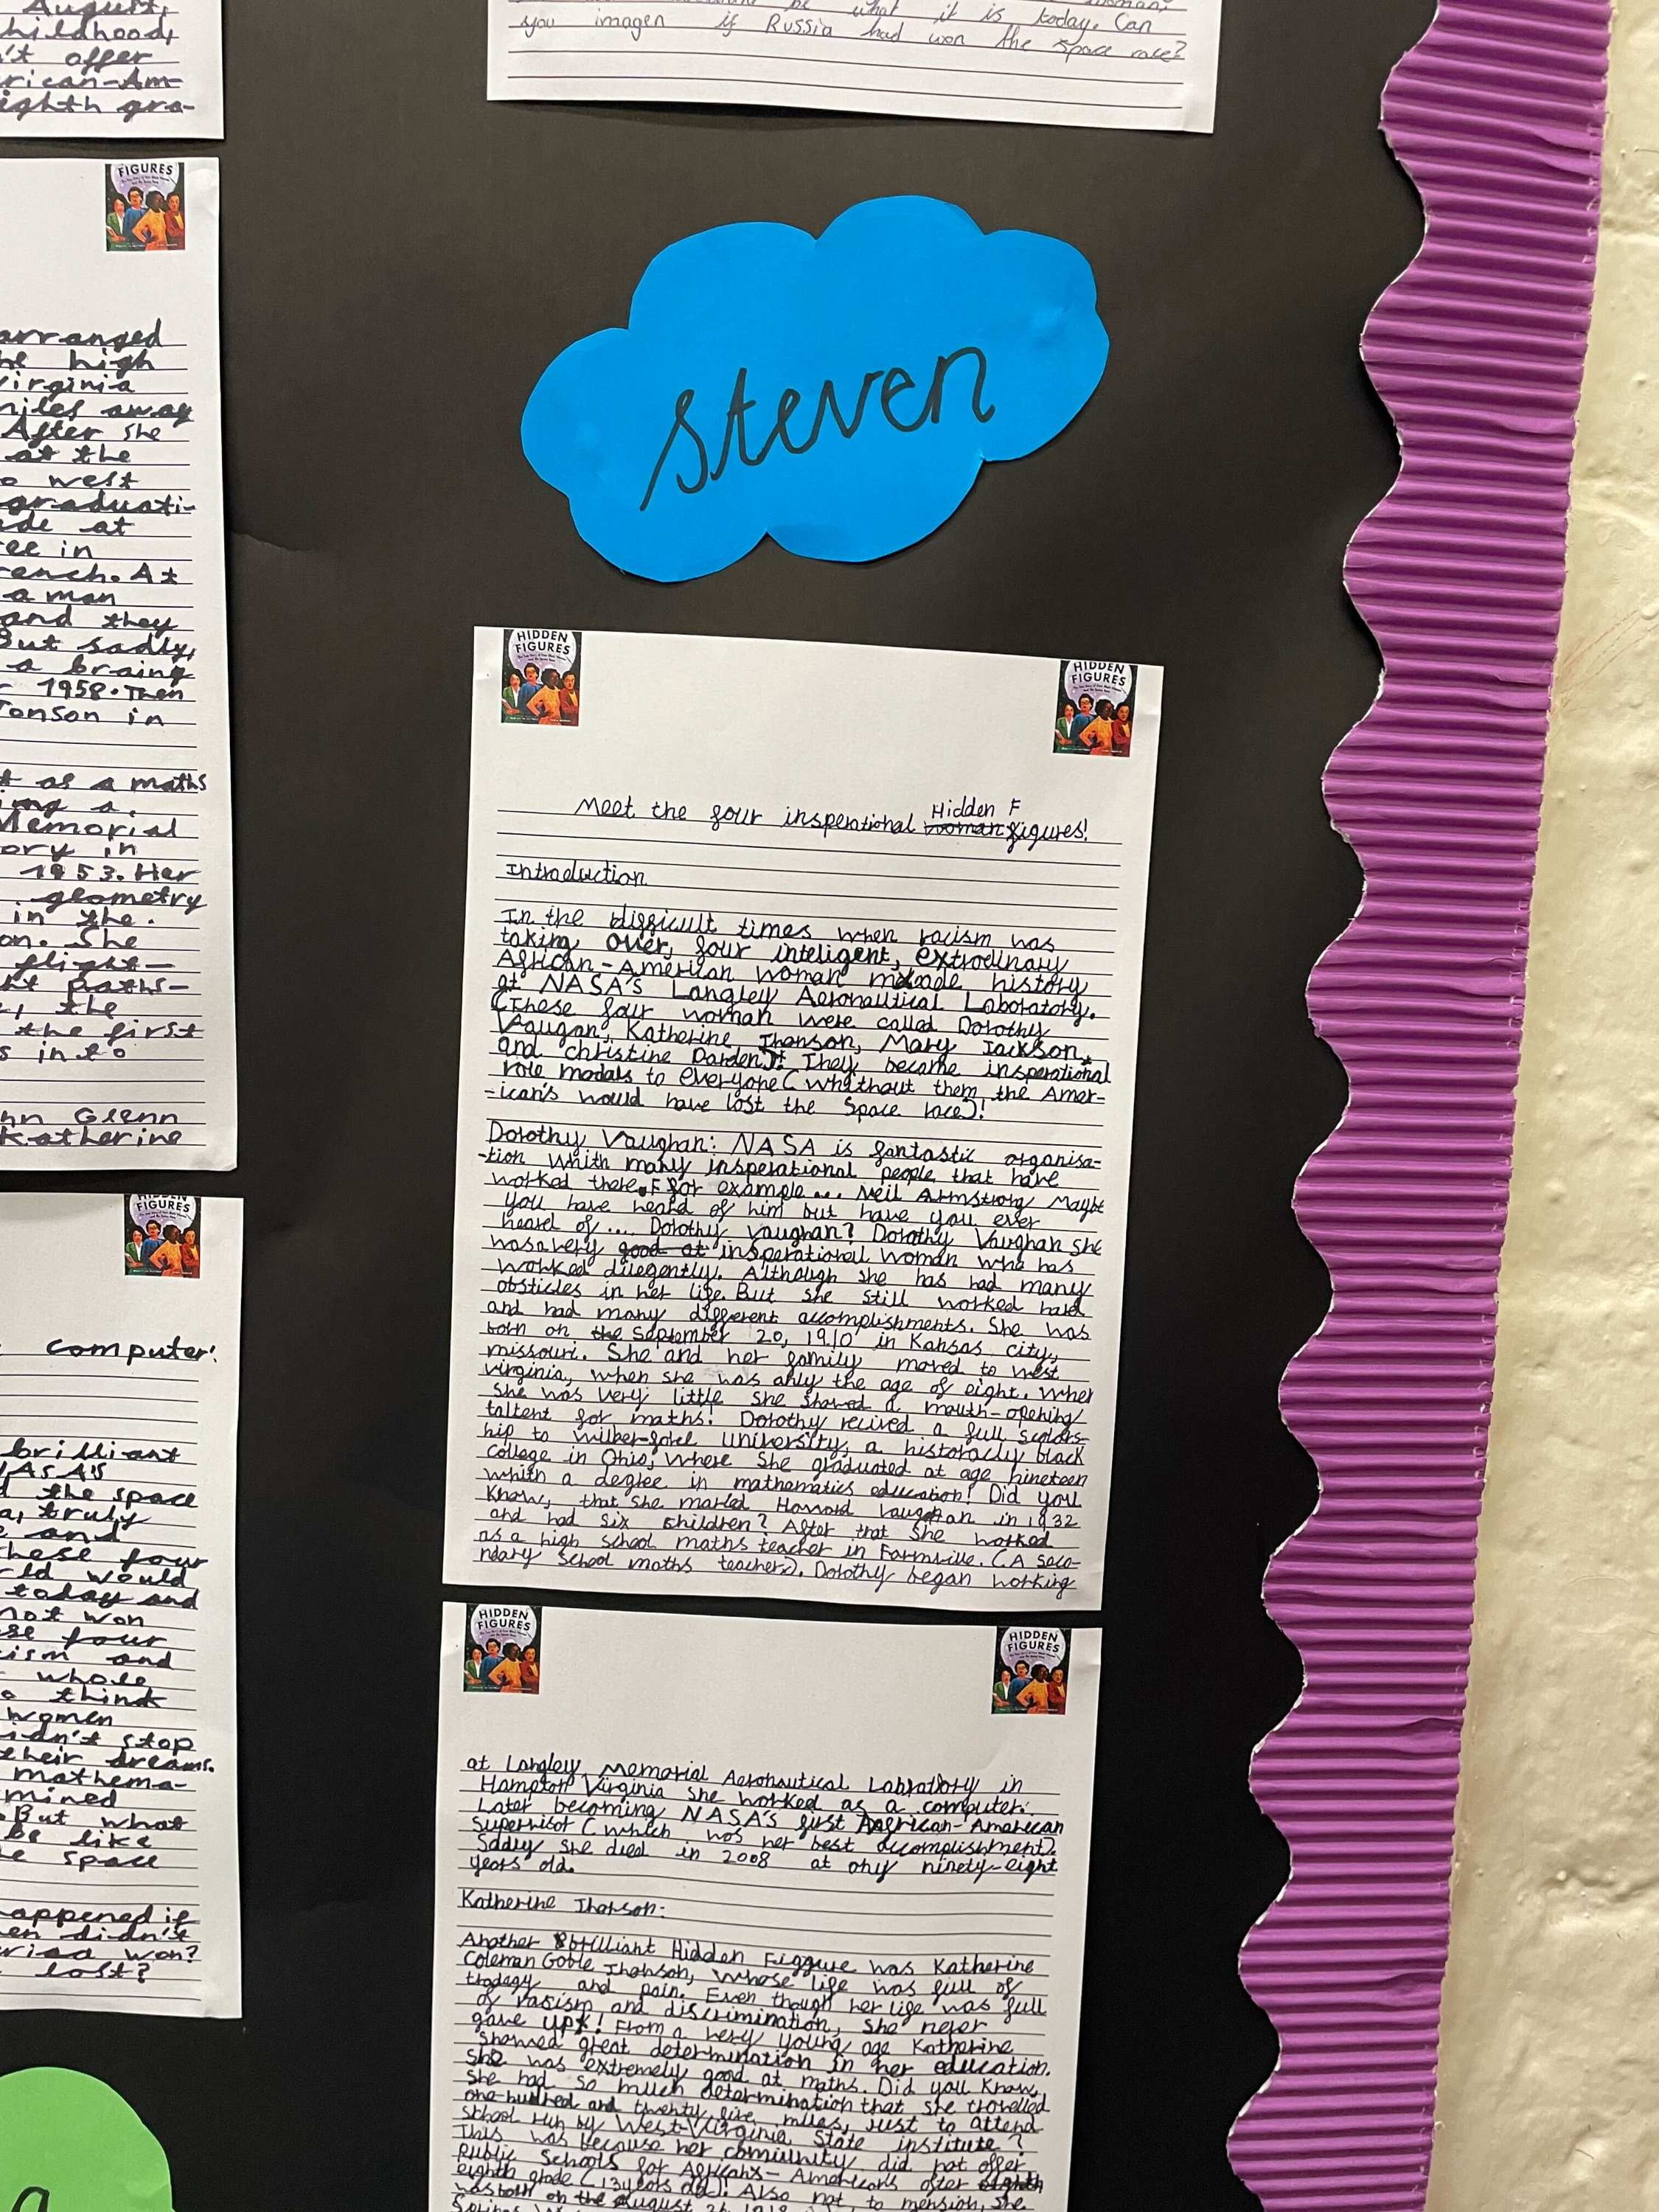 August,
hildhood,
't offer
rican-Am-
ighth gra-
be what it is today. Can
you imagen if Russia had won the space race?
FIGURES
arranged
he high
Virginia
miles away
After she
at the
o west
graduati-
de at
ree in
rench. At
a man
and they
But sadly,
a braing
r 1958. Then
Jonson in
t as a maths
ing a
Memorial
ory in
1953. Her
geometry
in the.
on. She
flight-
ht paths-
, the
the first
s into
hn Glenn
Katherine
HIDDEN
FIGURES
computer!
brilliant
NASA's
d the space
a, truly
e and
these four
rld would
today and
not won
se four
ism and
whole
o think
women
idn't stop
their dreams.
mathema-
mined
But what
be like
e space
appened if
en didn't
won?
lost?
steven
HIDDEN
FIGURES
HIDDEN
FIGURES
Meet the four insperational Hidden F
woman figures!
Introduction
In the difficult times when racism was
taking over, four inteligent, extrodinary
African-American woman made history
at NASA's Langley Aeronautical Laboratory.
(These four woman were called Dorothy
Vaugan, Katherine Jhonson, Mary Jackson
and christine Darden). They became insperational
role modals to everyone (whithout them the Amer-
-ican's would have lost the Space race)!
Dorothy Vaughan: NASA is fantastic organisa-
-tion whith many insperational people that have
worked there. For example... Neil Armstrong Maybe
you have heard of him but have you ever
heard of.... Dorothy Vaughan? Dorothy Vaughan she
was a very good at insperational woman who has
worked diligently. Although she has had many
obsticles in her life. But she still worked hard
and had many different accomplishments. She was
born on the September 20, 1910 in Kansas city,
missouri. She and her family moved to west
virginia, when she was only the age of eight. When
she was very little she showed a mouth-opening
taltent for maths! Dorothy recived a full scolors-
hip to wilber-fore university, a historacly black
college in Ohio, where she graduated at age nineteen
whith a degree in mathematics education! Did you
know, that she maried Howard Vaughan in 1932
and had six children? After that she worked
as a high school maths teacher in Farmville. (A seco-
ndary school maths teacher). Dorothy began working
HIDDEN
FIGURES
HIDDEN
FIGURES
at Langley Memorial Aeronautical Labratory in
Hampton Virginia she worked as a computer.
Later becoming NASA's first African-American
supervisor (which was her best accomplishment).
Sadly she died in 2008 at ony ninety-eight
years old.
Katherine Jhonson:
Another brilliant Hidden Figgure was Katherine
Coleman Goble Jhonson, whose life was full of
tradegy and pain. Even though her life was full
of rasism and discrimination, she never
gave up! From a very young age Katherine
showed great determination in her education.
She was extremely good at maths. Did you know,
she had so much determination that she travelled
one-hundred and twenty five miles, just to attend
school run by West-Virginia State institute?
This was because her comiunity did not offer
public schools for Africans-Americans after eighth
eighth grade (13 years old)! Also not to mension, she
was born on the August 26 1918